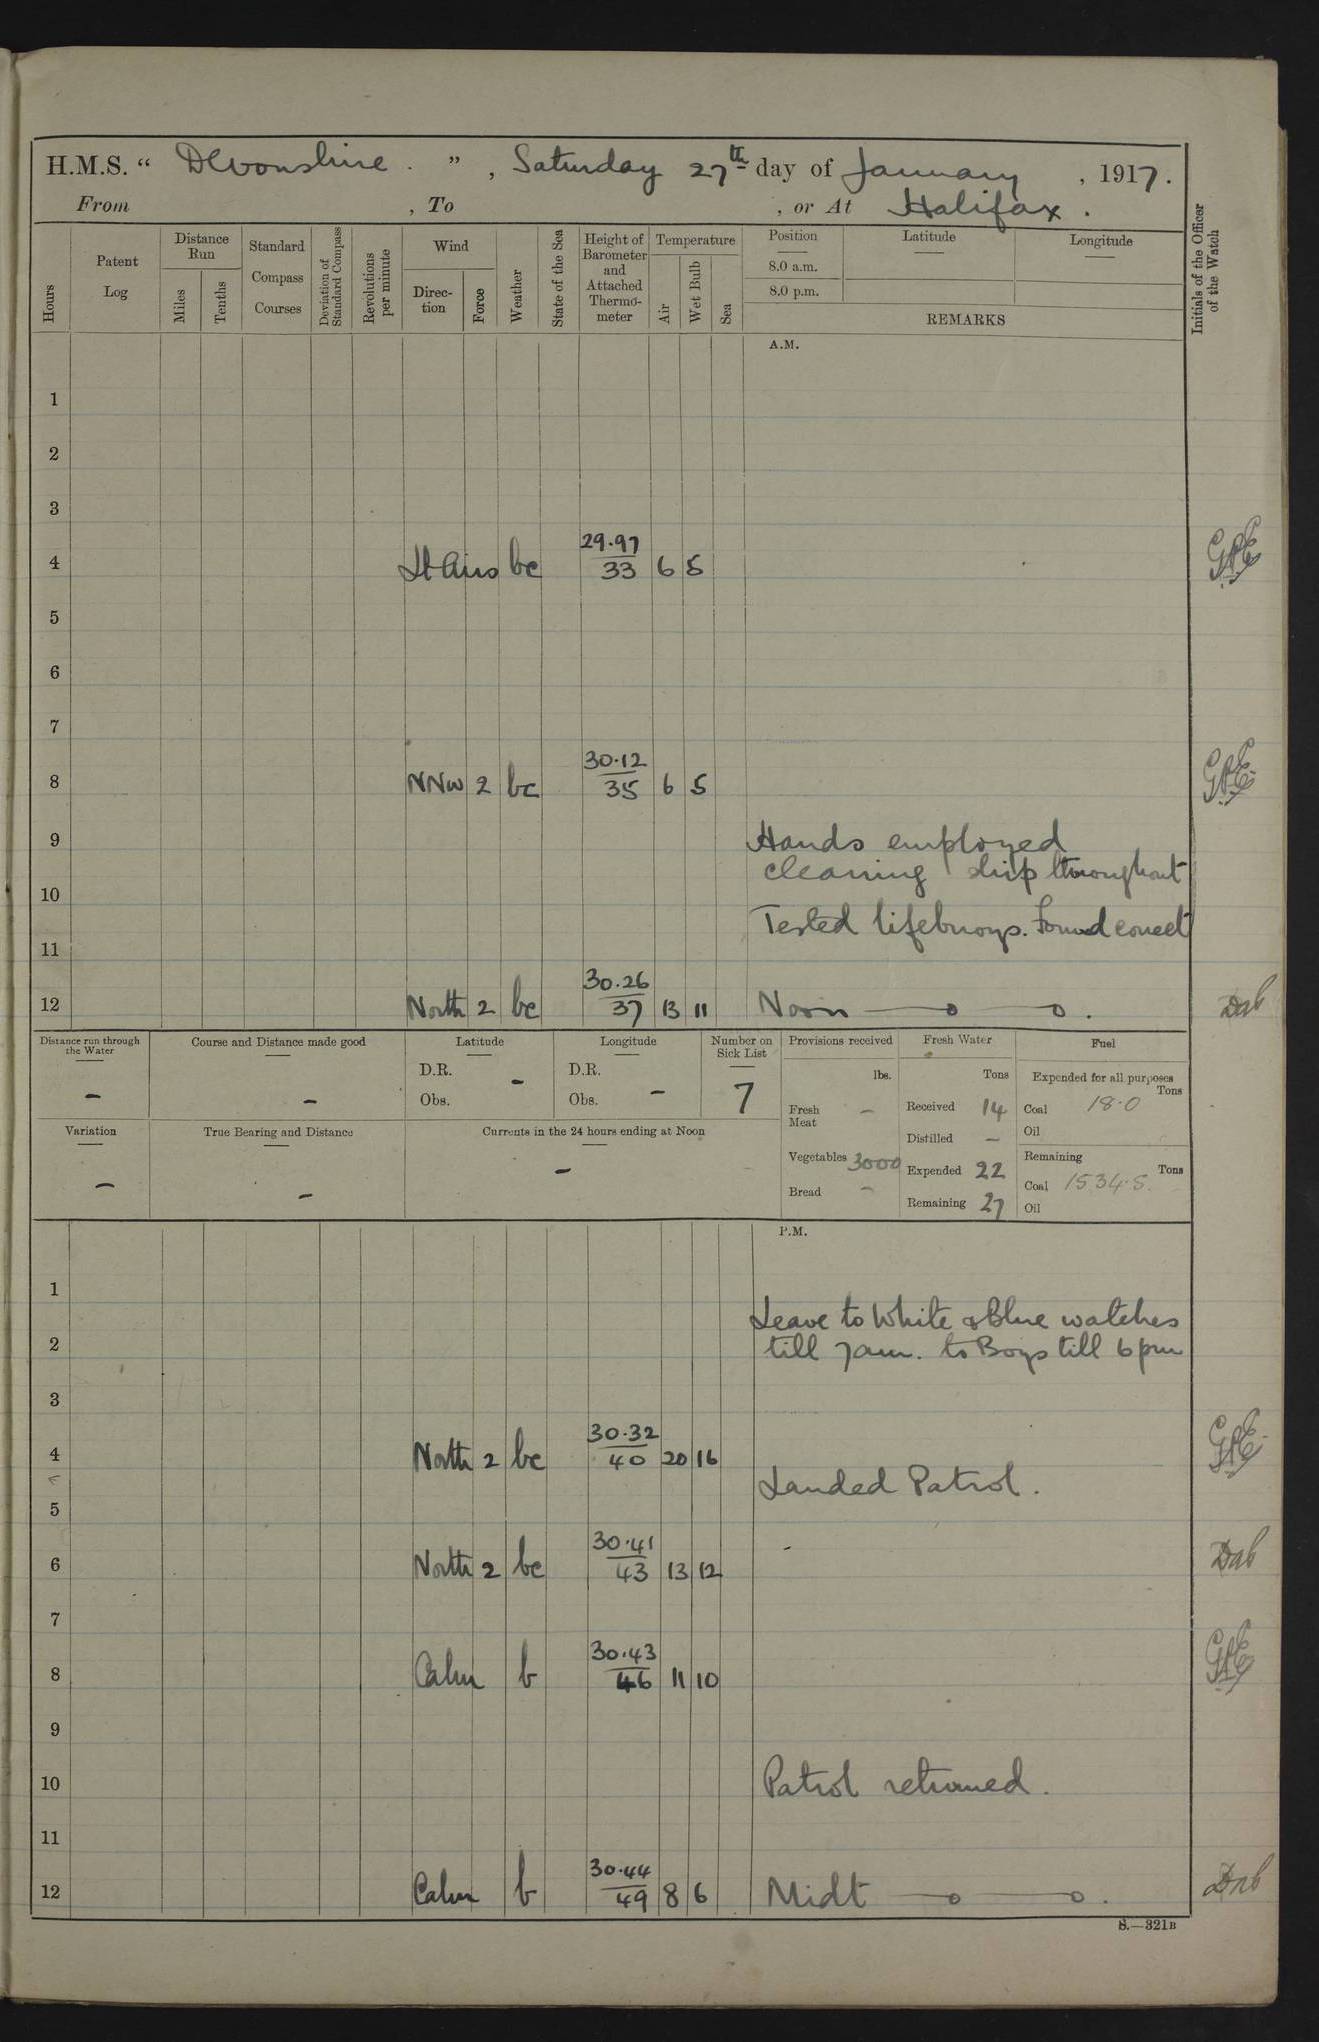 H.M.S. “ Devonshire . ” , Saturday 27th day of January , 1917.
From , To , or At Halifax .
Hours
Patent Log
Distance Run
Miles
Tenths
Standard Compass Courses
Deviation of Standard Compass
Revolutions per minute
Wind
Direc-tion
Force
Weather
State of the Sea
Height of Barometer and Attached Thermo-meter
Temperature
Air
Wet Bulb
Sea
Position
8.0 a.m.
8.0 p.m.
Latitude
Longitude
REMARKS
Initials of the Officer of the Watch
A.M.
1
2
3
4 Lt Airs bc 29.97 33 6 5
5
6
7
8 NNW 2 bc 30.12 35 6 5
9 Hands employed
cleaning ship throughout
10
Tested lifebuoys. Found correct
11
12 North 2 bc 30.26 37 13 11 Noon —o—o . Dab
Distance run through the Water
–
Course and Distance made good
–
Latitude
D.R. –
Obs.
Longitude
D.R.
Obs. –
Number on Sick List
7
Provisions received
lbs.
Fresh Meat –
Vegetables 3000
Bread –
Fresh Water
Tons
Received 14
Distilled –
Expended 22
Remaining 27
Fuel
Expended for all purposes
Tons
Coal 18.0
Oil
Remaining
Tons
Coal 1534.5
Oil
Variation
–
True Bearing and Distance
–
Currents in the 24 hours ending at Noon
–
P.M.
1
Leave to White & Blue watches
2 till 7am. to Boys till 6pm
3
4 North 2 bc 30.32 40 20 16
Landed Patrol .
5
6 North 2 bc 30.41 43 13 12 Dab
7
8 Calm b 30.43 46 11 10
9
10 Patrol returned .
11
12 Calm b 30.44 49 8 6 Midt —o—o . Dab
S.—321B